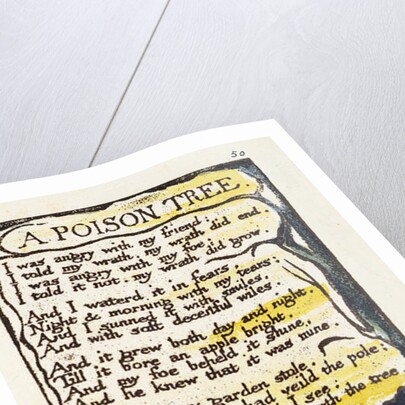 50
A POISON TREE
I was angry with my friend:
I told my wrath, my wrath did end.
I was angry with my foe:
I told it not, my wrath did grow.
And I waterd it in fears,
Night & morning with my tears:
And I sunned it with smiles,
And with soft deceitful wiles.
And it grew both day and night,
Till it bore an apple bright.
And my foe beheld it shine,
And he knew that it was mine.
garden stole,
had veild the pole
I see,
the tree